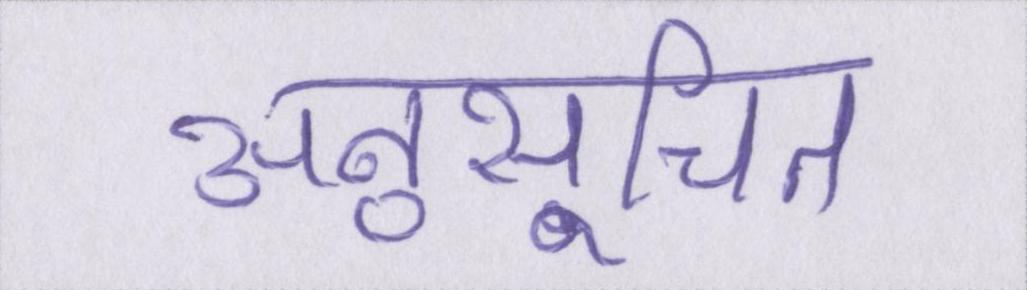 अनुसूचित